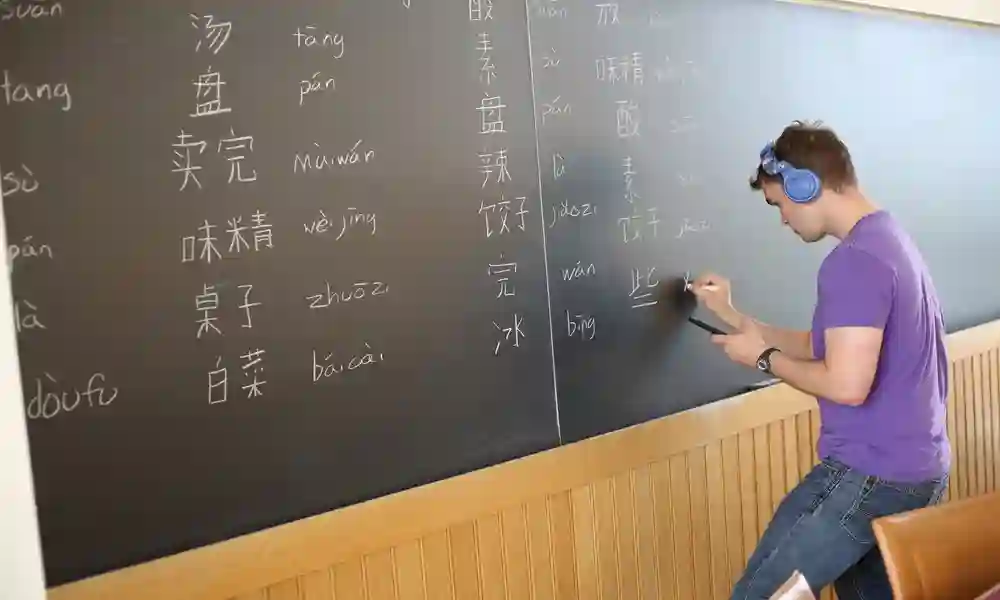 tang
sù
pán
là
dòufu
汤 tāng
盘 pán
卖完 màiwán
味精 wèijīng
桌子 zhuōzi
白菜 báicài
酸
素 sù
盘 pán
辣 là
饺子 jiǎozi
完 wán
冰 bīng
放
味精
酸
素
饺子 jiǎozi
些